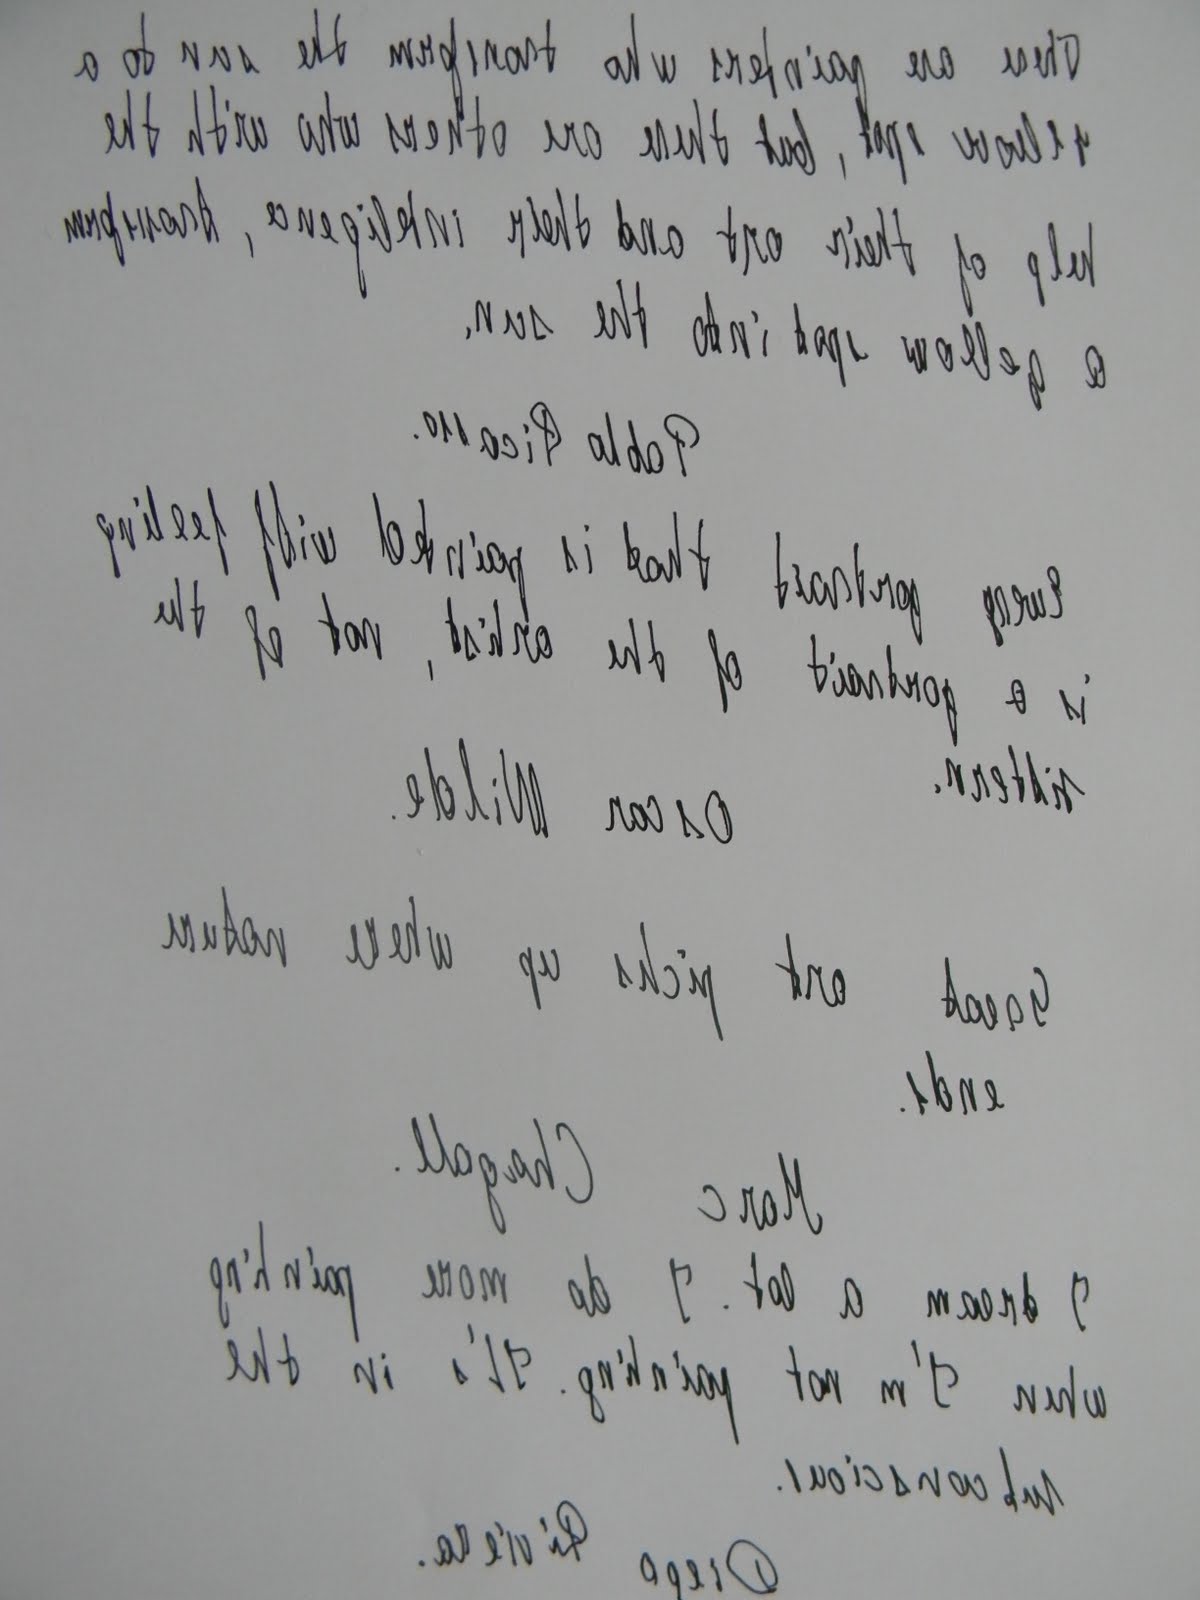 There are painters who transform the sun to a
yellow spot, but there are others who with the
help of their art and their inteligence, transform
a yellow spot into the sun.
Pablo Picasso.
Every portrait that is painted with feeling
is a portrait of the artist, not of the
sittern.
Oscar Wilde.
Great art picks up where nature
ends.
Marc Chagall.
I dream a lot. I do more painting
when I'm not painting. It's in the
subconscious.
Diego Riviera.